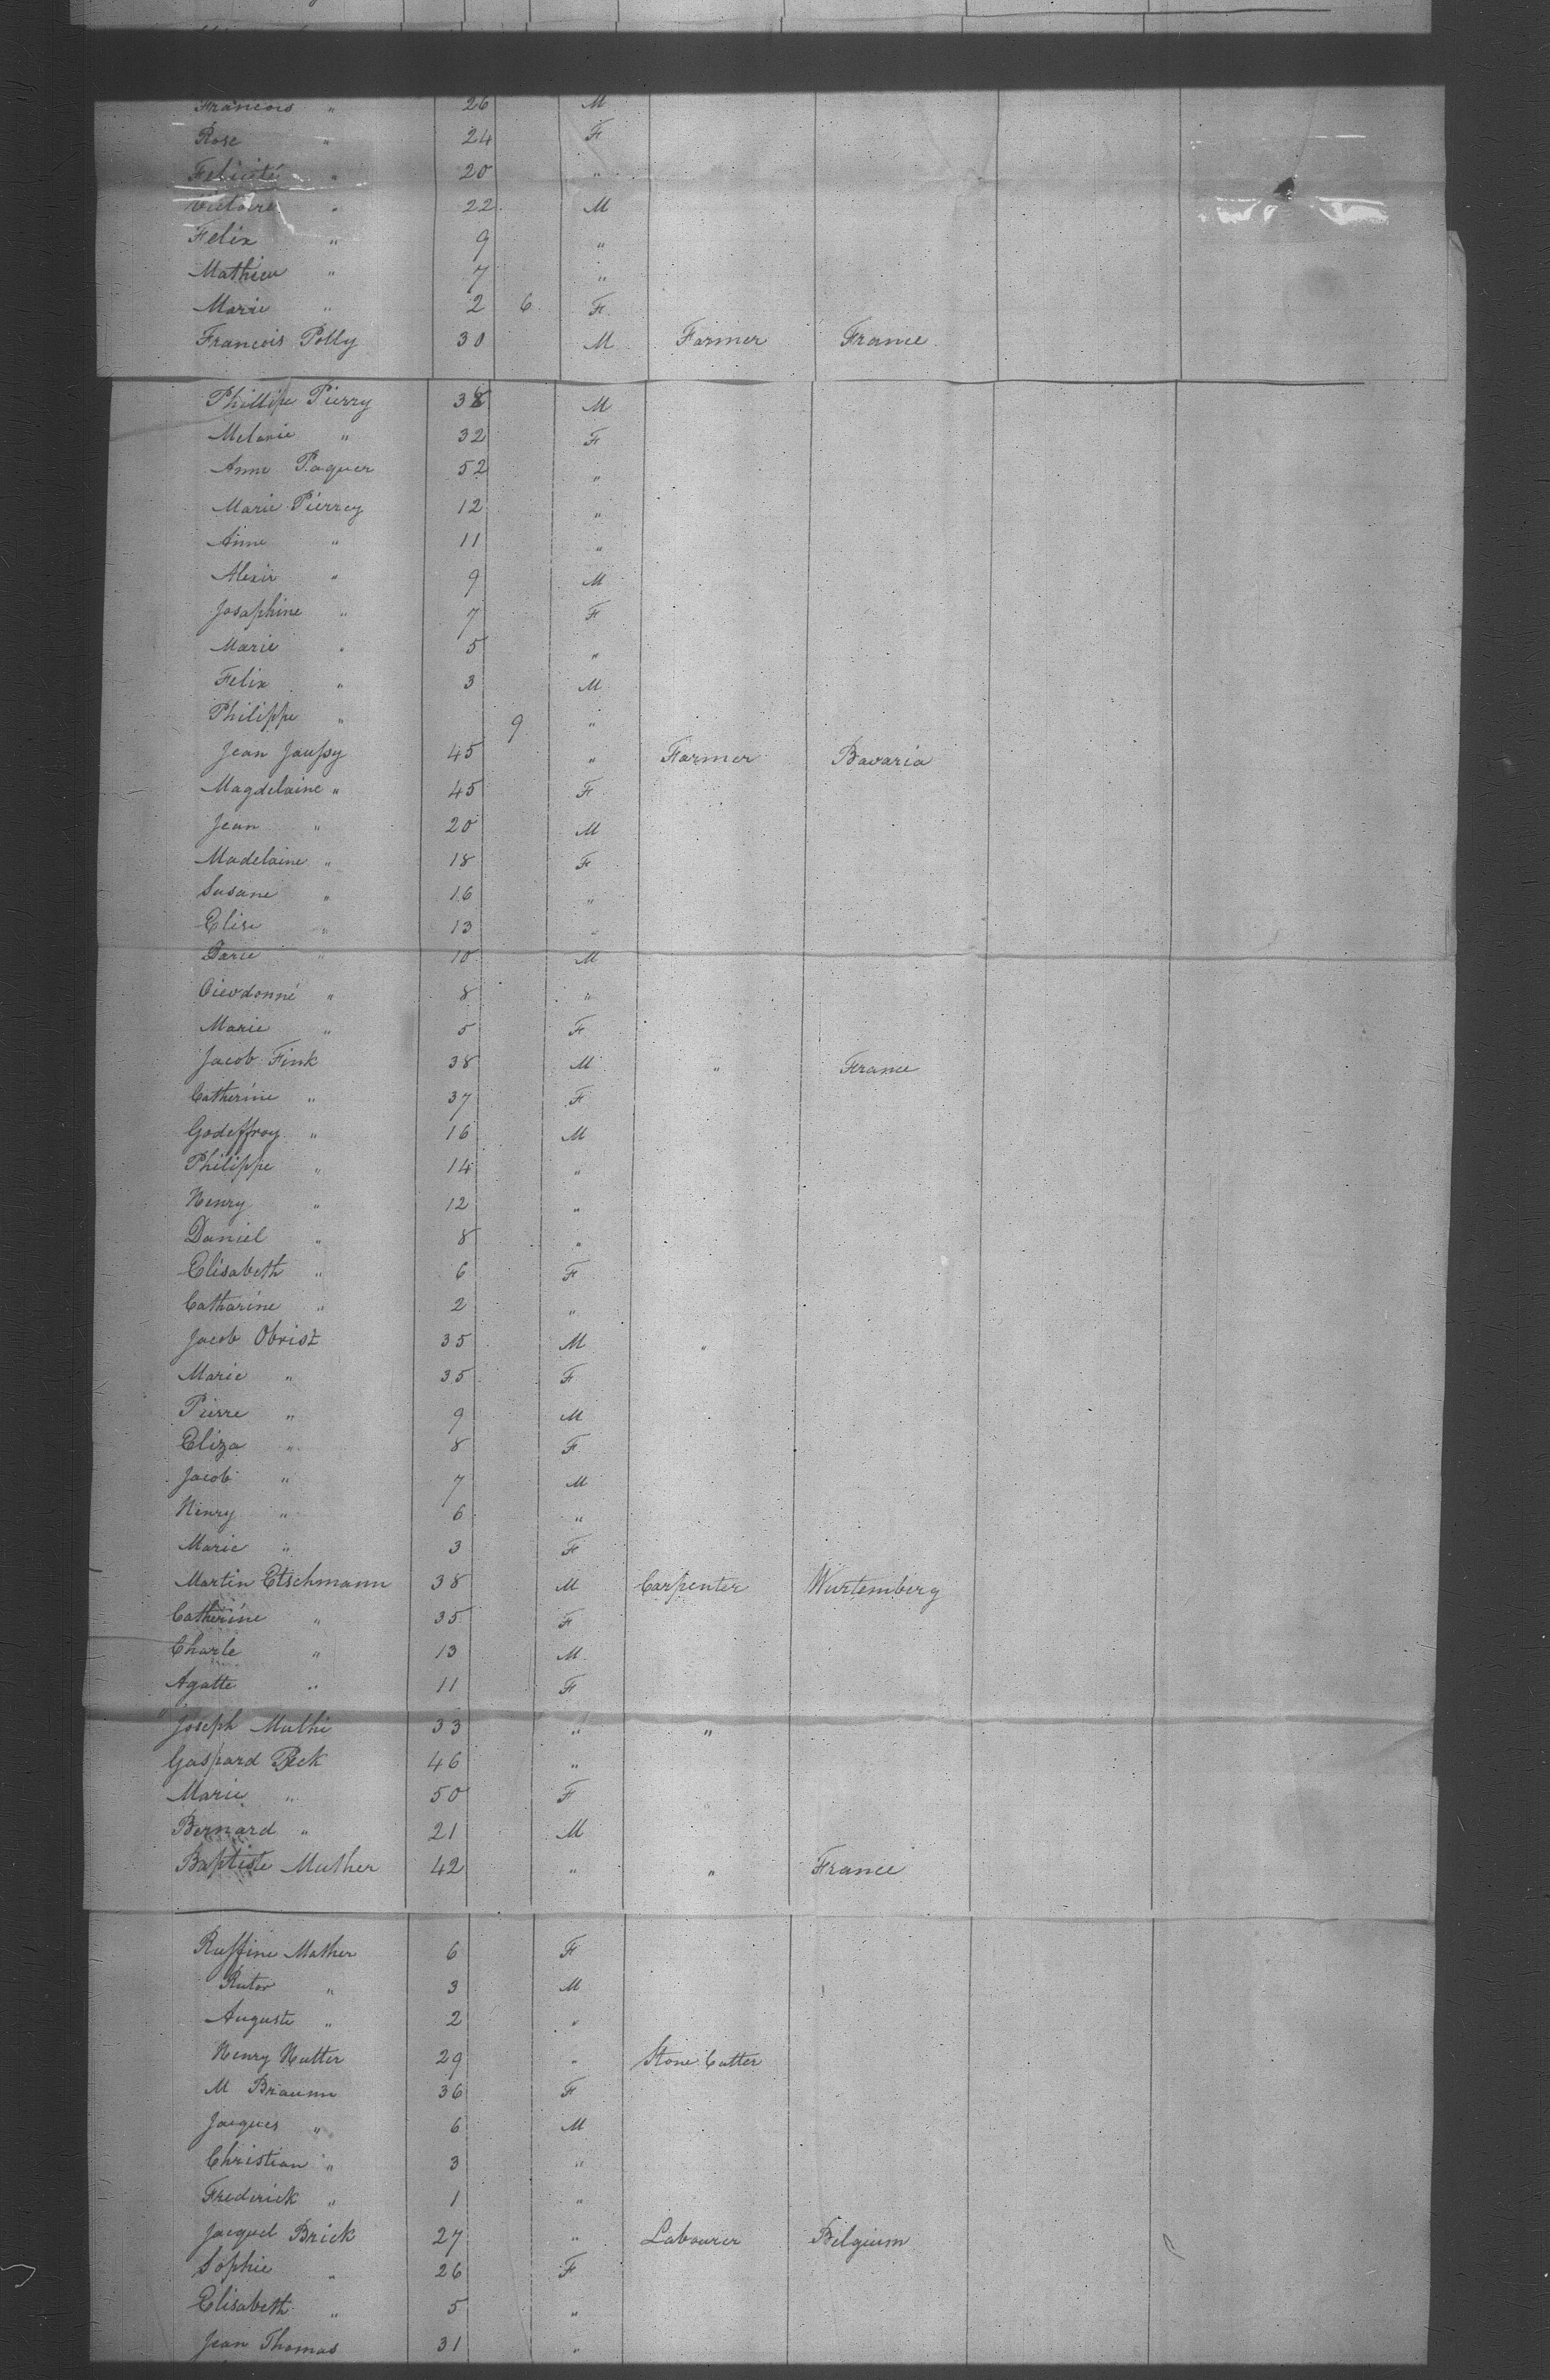 Francois " 26 M
Rose " 24 F
Felicité " 20 "
Victoire " 22 M
Felix " 9 "
Mathieu " 7 "
Marie " 2 6 F
Francois Polly 30 M Farmer France
Phillipe Pierry 38 M
Melanie " 32 F
Anne Paquer 52 "
Marie Pierrey 12 "
Anne " 11 "
Alexis " 9 M
Josaphine " 7 F
Marie " 5 "
Felix " 3 M
Philippe " 9 "
Jean Jaussy 45 " Farmer Bavaria
Magdelaine " 45 F
Jean " 20 M
Madelaine " 18 F
Susane " 16 "
Elise " 13 "
" 10 M
Dieudonné " 8 "
Marie " 5 F
Jacob Fink 38 M " France
Catherine " 37 F
Godeffroy " 16 M
Philippe " 14 "
Henry " 12 "
Daniel " 8 "
Elisabeth " 6 F
Catharine " 2 "
Jacob Obrist 35 M "
Marie " 35 F
Pierre " 9 M
Eliza " 8 F
Jacob " 7 M
Henry " 6 "
Marie " 3 F
Martin Etschmann 38 M Carpenter Wurtemberg
Catherine " 35 F
Charle " 13 M
Agatte " 11 F
" Joseph Muthi 33 " "
Gaspard Beck 46 "
Marie " 50 F
Bernard " 21 M
Baptiste Muther 42 " " France
Ruffine Mather 6 F
Rutor " 3 M
Auguste " 2 "
Henry Hutter 29 " Stone Cutter
M Braunn 36 F
Jacques " 6 M
Christian " 3 "
Frederick " 1 "
Jacquel Brick 27 " Labourer Belgium
Sophie " 26 F
Elisabeth " 5 "
Jean Thomas 31 "